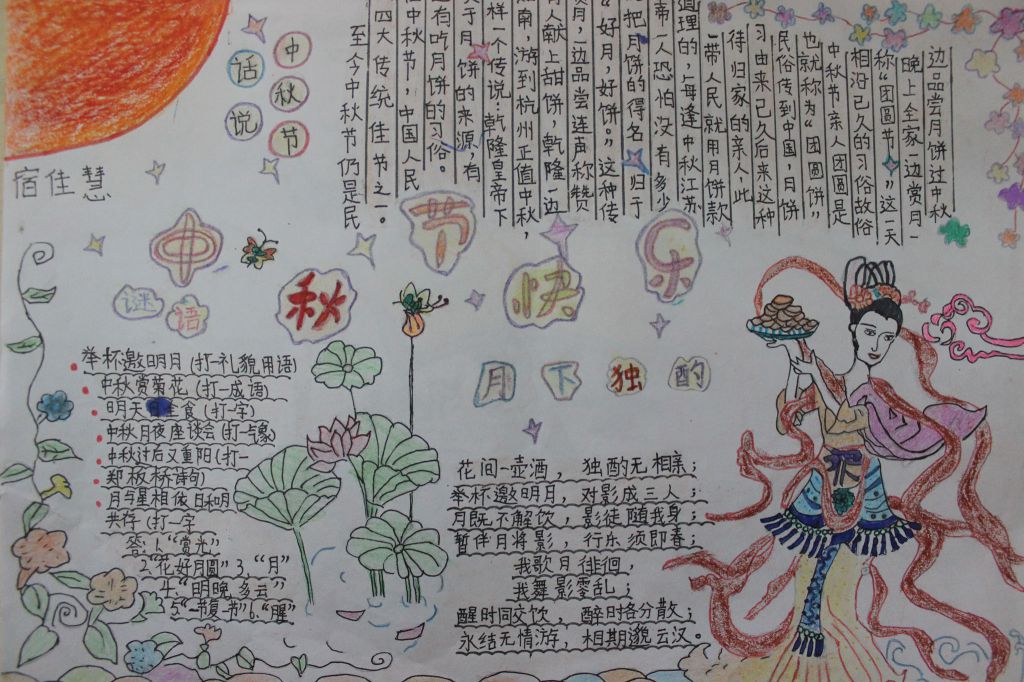 中秋节
话说
宿住慧
至今中秋节仍是民
四大传统佳节之一。
中秋节,中国人民
有吃月饼的习俗。
于月饼的来源,有
样一个传说:乾隆皇帝下
南,游到杭州正值中秋,
人献上甜饼,乾隆一边
月,一边品尝连声称赞
“好月,好饼。”这种传
把月饼的得名归于
帝一人恐怕没有多少
道理的,每逢中秋江苏
一带人民就用月饼款
待归家的亲人此
习由来已久后来这种
民俗传到中国,月饼
也就称为“团圆饼”
中秋节亲人团圆是
相沿已久的习俗故俗
称“团圆节”这一天
晚上全家一边赏月一
边品尝月饼过中秋
中秋节快乐
谜语
举杯邀明月(打一礼貌用语)
中秋赏菊花(打一成语)
明天 主食(打一字)
中秋月夜座谈会(打一气象)
中秋过后又重阳(打一
郑板桥诗句)
月与星相依日和月
共存(打一字
答:1“赏光”
2.“花好月圆”3,“月”
4.“明晚多云”
5“一节复一节”6.“腥”
月下独酌
花间一壶酒,独酌无相亲;
举杯邀明月,对影成三人;
月既不解饮,影徒随我身;
暂伴月将影,行乐须即春;
我歌月徘徊,
我舞影零乱;
醒时同交饮,醉时各分散;
永结无情游,相期邈云汉。